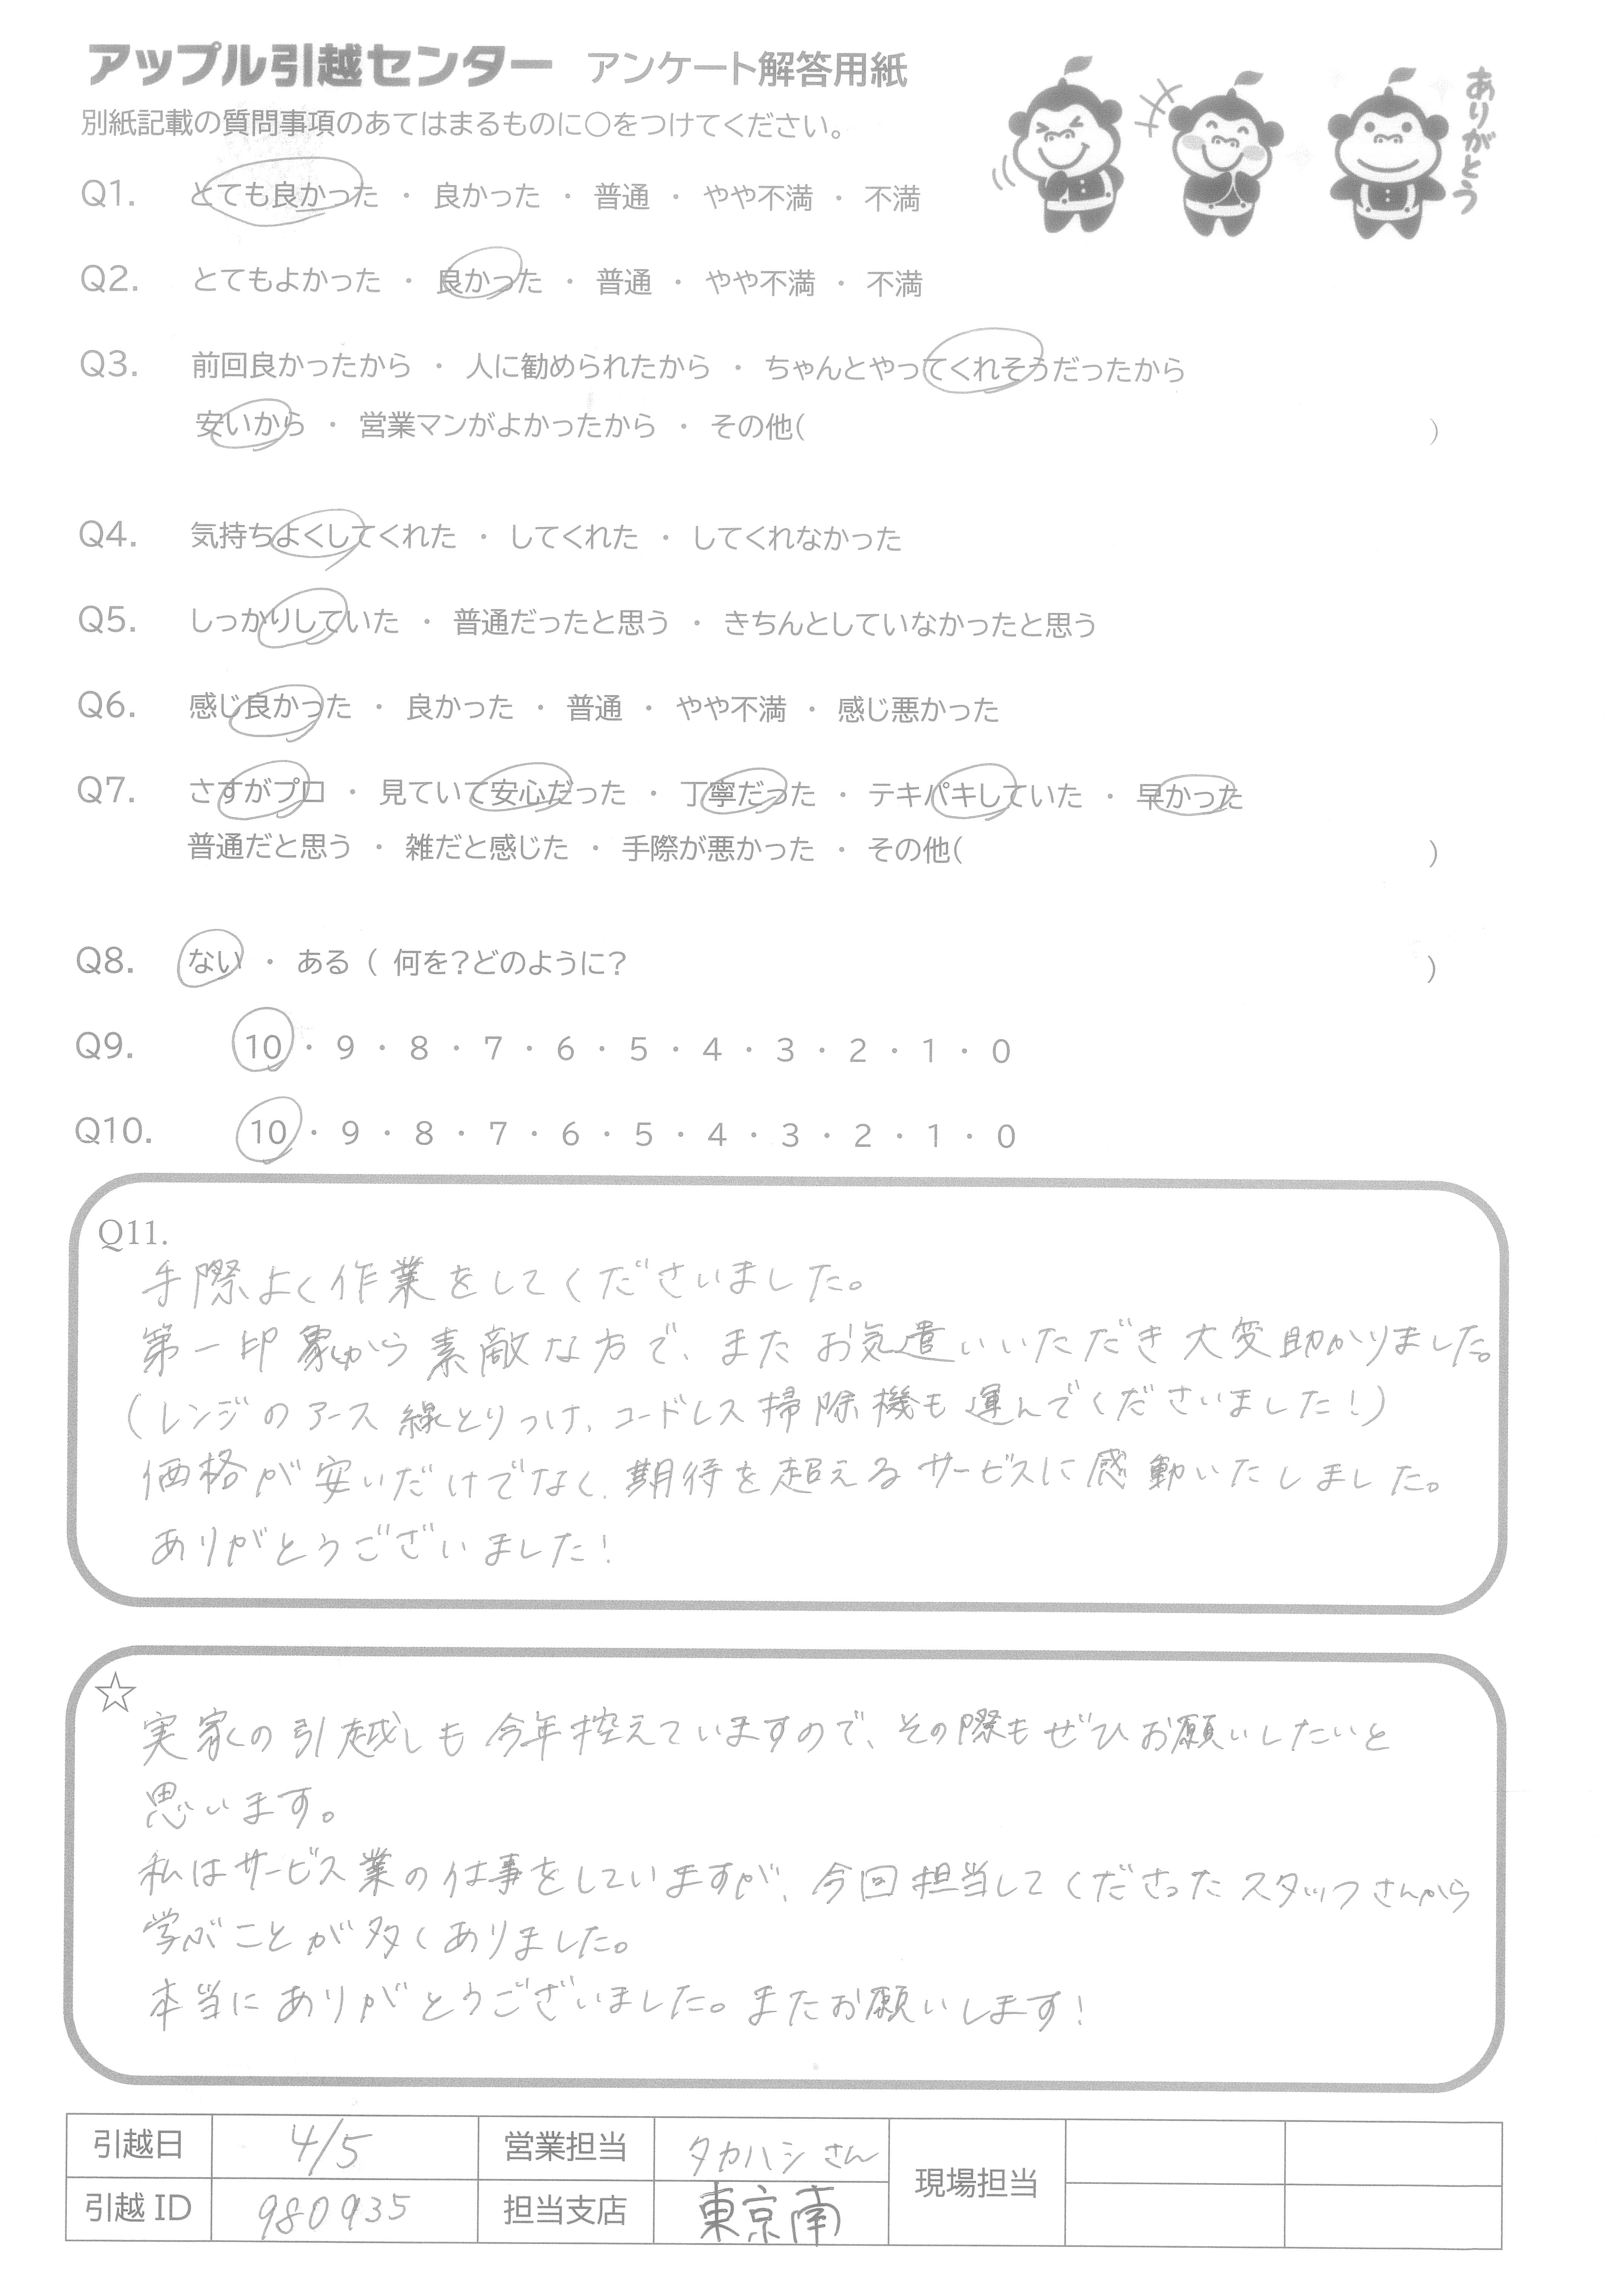 アップル引越センター アンケート解答用紙
ありがとう
別紙記載の質問事項のあてはまるものに○をつけてください。
Q1. とても良かった ・ 良かった ・ 普通 ・ やや不満 ・ 不満
Q2. とてもよかった ・ 良かった ・ 普通 ・ やや不満 ・ 不満
Q3. 前回良かったから ・ 人に勧められたから ・ ちゃんとやってくれそうだったから
安いから ・ 営業マンがよかったから ・ その他( )
Q4. 気持ちよくしてくれた ・ してくれた ・ してくれなかった
Q5. しっかりしていた ・ 普通だったと思う ・ きちんとしていなかったと思う
Q6. 感じ良かった ・ 良かった ・ 普通 ・ やや不満 ・ 感じ悪かった
Q7. さすがプロ ・ 見ていて安心だった ・ 丁寧だった ・ テキパキしていた ・ 早かった
普通だと思う ・ 雑だと感じた ・ 手際が悪かった ・ その他( )
Q8. ない ・ ある ( 何を?どのように? )
Q9. 10 ・ 9 ・ 8 ・ 7 ・ 6 ・ 5 ・ 4 ・ 3 ・ 2 ・ 1 ・ 0
Q10. 10 ・ 9 ・ 8 ・ 7 ・ 6 ・ 5 ・ 4 ・ 3 ・ 2 ・ 1 ・ 0
Q11.
手際よく作業をしてくださいました。
第一印象から素敵な方で、またお気遣いいただき大変助かりました。
(レンジのアース線とりつけ、コードレス掃除機も運んでくださいました!)
価格が安いだけでなく、期待を超えるサービスに感動いたしました。
ありがとうございました!
☆
実家の引越しも今年控えていますので、その際もぜひお願いしたいと
思います。
私はサービス業の仕事をしていますが、今回担当してくださったスタッフさんから
学ぶことが多くありました。
本当にありがとうございました。またお願いします!
引越日 4/5 営業担当 タカハシさん 現場担当
引越ID 980935 担当支店 東京南